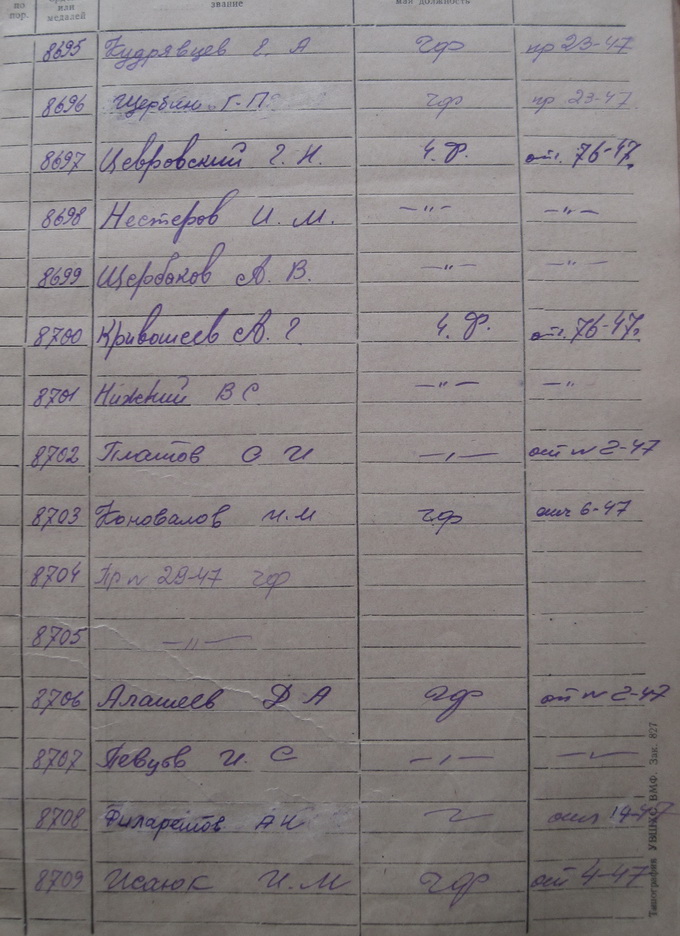 по или звание ная должность
пор. медалей
8695 Кудрявцев Г. А чф пр 23-47
8696 Щербин Г. П чф пр 23-47
8697 Цевровский Г. Н. Ч. Ф. от. 76-47г.
8698 Нестеров И. М. —"— —"—
8699 Щербаков А. В. —"— —"—
8700 Кривошеев А. Г Ч. Ф. от. 76-47г.
8701 Нижний В С —"— —"
8702 Платов С И —,— от № 2-47
8703 Коновалов И. М чф 6-47
8704 Пр № 29-47 чф
8705 —"—
8706 Алашеев Д А чф от № 2-47
8707 Певцов И. С —,— —"—
8708 Филаретов А И 14-47
8709 Исаюк И. М чф от 4-47
Типография УВШХС ВМФ. Зак. 827